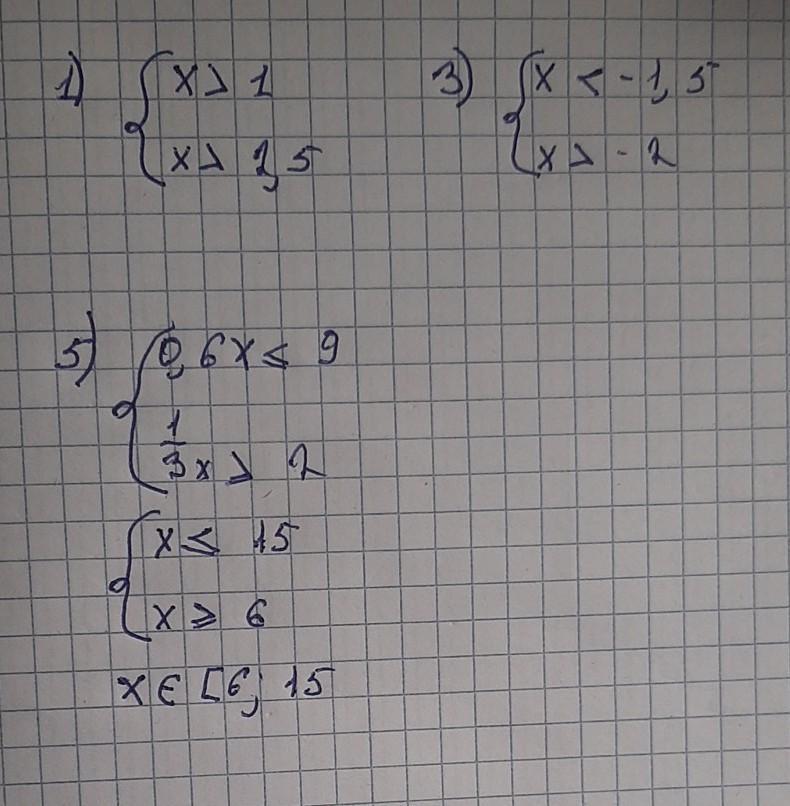 1) { x > 1
x > 1,5
3) { x < -1,5
x > -2
5) { 0,6x ≤ 9
1/3x ≥ 2
{ x ≤ 15
x ≥ 6
x ∈ [6; 15